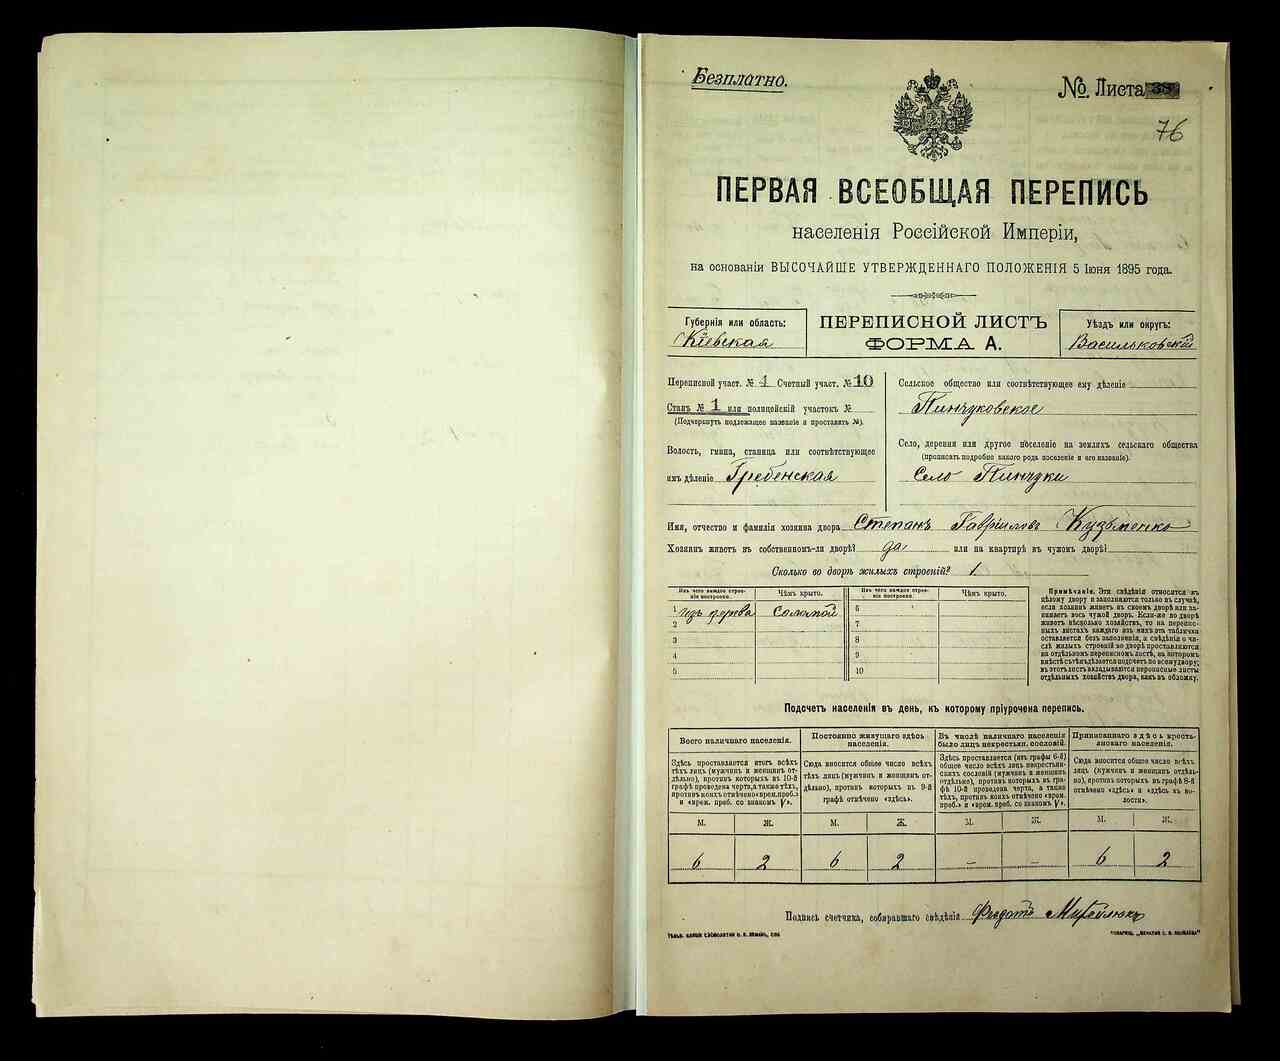 Безплатно.
№ Листа 38
76
ПЕРВАЯ ВСЕОБЩАЯ ПЕРЕПИСЬ
населенія Россійской Имперіи,
на основаніи ВЫСОЧАЙШЕ УТВЕРЖДЕННАГО ПОЛОЖЕНІЯ 5 Іюня 1895 года.
Губернія или область:
Кіевская
ПЕРЕПИСНОЙ ЛИСТЪ
ФОРМА А.
Уѣздъ или округъ:
Васильковскій
Переписной участ. № 4 Счетный участ. № 10
Станъ № 1 или полицейскій участокъ №
(Подчеркнуть подлежащее названіе и проставить №).
Волость, гмина, станица или соотвѣтствующее
имъ дѣленіе Гребенская
Сельское общество или соотвѣтствующее ему дѣленіе
Пинчуковское
Село, деревня или другое поселеніе на земляхъ сельскаго общества
(прописать подробно какого рода поселеніе и его названіе).
Село Пинчуки
Имя, отчество и фамилія хозяина двора Степанъ Гавріиловъ Кузьменко
Хозяинъ живетъ въ собственномъ-ли дворѣ? да или на квартирѣ въ чужомъ дворѣ?
Сколько во дворѣ жилыхъ строеній? 1
Изъ чего каждое строеніе построено. Чѣмъ крыто. Изъ чего каждое строеніе построено. Чѣмъ крыто.
1 Изъ дерева Соломой 6
2 7
3 8
4 9
5 10
Примѣчаніе. Эти свѣдѣнія относятся къ
цѣлому двору и заполняются только въ случаѣ,
если хозяинъ живетъ въ своемъ дворѣ или занимаетъ
весь чужой дворъ. Если-же во дворѣ
живетъ нѣсколько хозяйствъ, то на переписныхъ
листахъ каждаго изъ нихъ эта табличка
оставляется безъ заполненія, а свѣдѣнія о числѣ
жилыхъ строеній во дворѣ проставляются
на отдѣльномъ переписномъ листѣ, на которомъ
вмѣстѣ съ тѣмъ дѣлается подсчетъ по всему двору;
въ этотъ листъ вкладываются переписные листы
отдѣльныхъ хозяйствъ двора, какъ въ обложку.
Подсчетъ населенія въ день, къ которому пріурочена перепись.
Всего наличнаго населенія.
Здѣсь проставляется итогъ всѣхъ
тѣхъ лицъ (мужчинъ и женщинъ отдѣльно),
противъ которыхъ въ 10-й
графѣ проведена черта, а также тѣхъ,
противъ коихъ отмѣчено «врем. преб.»
и «врем. преб. со знакомъ V».
Постоянно живущаго здѣсь
населенія.
Сюда вносится общее число всѣхъ
тѣхъ лицъ (мужчинъ и женщинъ отдѣльно),
противъ которыхъ въ 9-й
графѣ отмѣчено «здѣсь».
Въ числѣ наличнаго населенія
было лицъ некрестьян. сословій.
Здѣсь проставляется (изъ графы 6-й)
общее число всѣхъ лицъ некрестьянскихъ
сословій (мужчинъ и женщинъ
отдѣльно), противъ которыхъ въ графѣ
10-й проведена черта, а также
тѣхъ, противъ коихъ отмѣчено «врем.
преб.» и «врем. преб. со знакомъ V».
Приписаннаго здѣсь крестьянскаго
населенія.
Сюда вносится общее число всѣхъ
лицъ (мужчинъ и женщинъ отдѣльно),
противъ которыхъ въ графѣ 8-й
отмѣчено «здѣсь» и «здѣсь къ волости».
М. Ж. М. Ж. М. Ж. М. Ж.
6 2 6 2 – – 6 2
Подпись счетчика, собиравшаго свѣдѣнія Федотъ